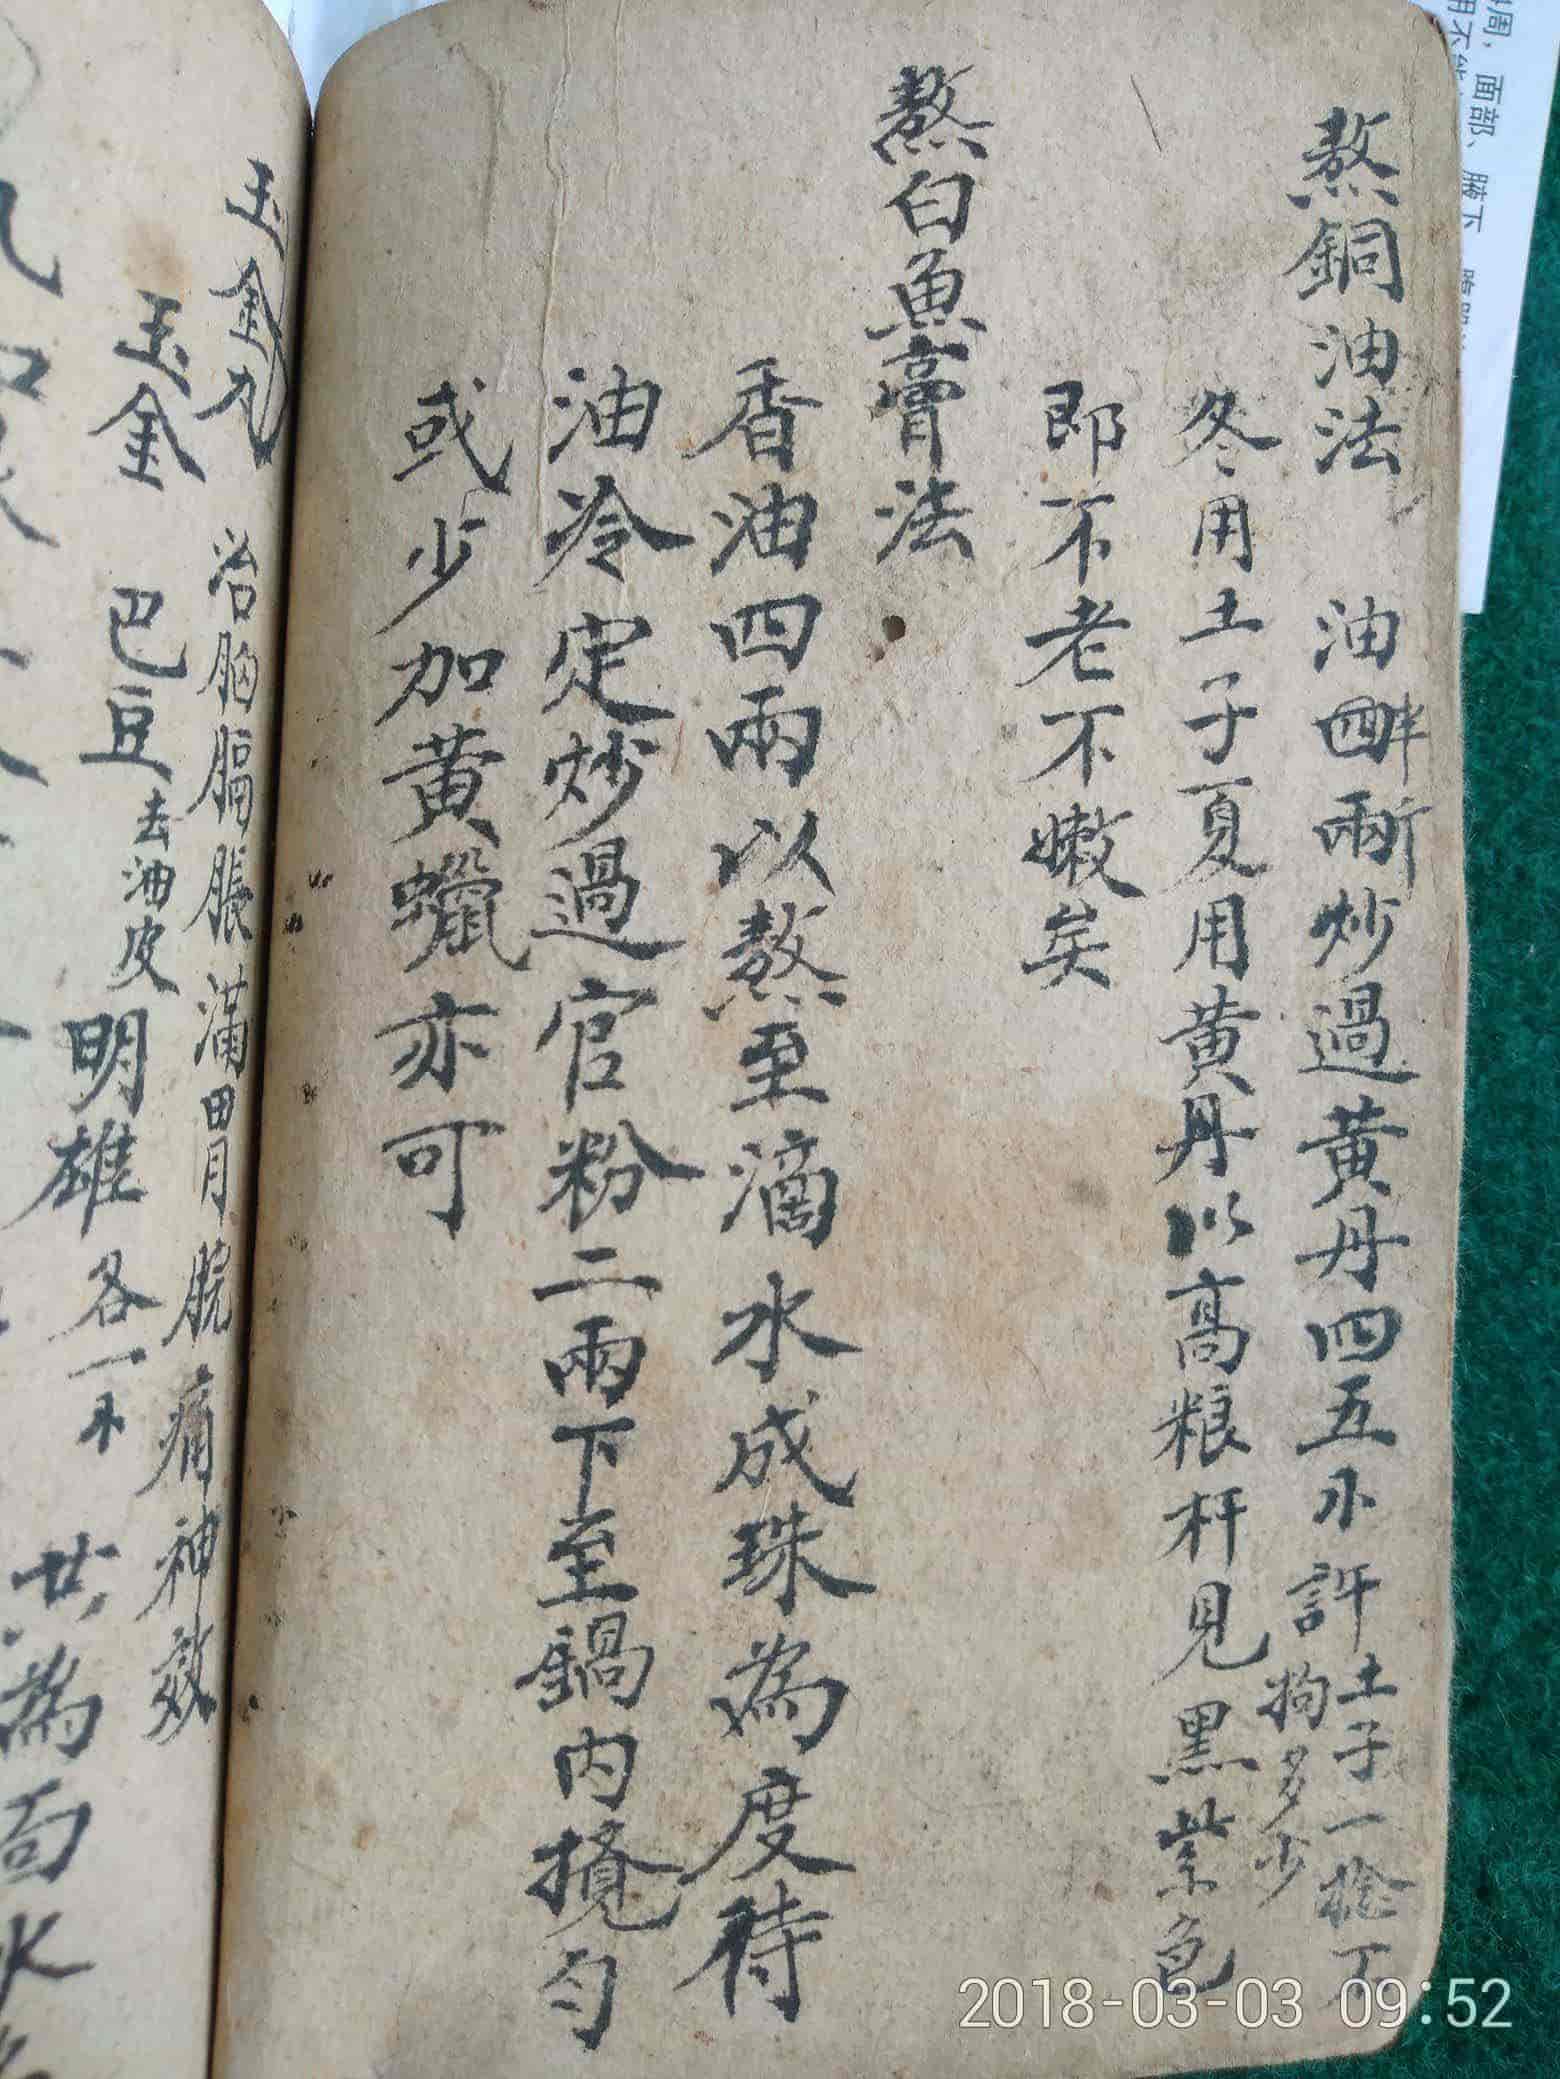 熬銅油法　油四兩半斤炒過黄丹四五小許土子一捻不拘多少
冬用土子夏用黄丹以高粮杆見黑紫色
即不老不嫩矣
熬白魚膏法
香油四兩以熬至滴水成珠為度待
油冷定炒過官粉二兩下至鍋内攪匀
或少加黄蠟亦可
玉金丸　治胸膈脹滿胃脘痛神效
玉金　巴豆去油皮　明雄各一　共為
面水
周，面部、腋下
2018-03-03 09:52